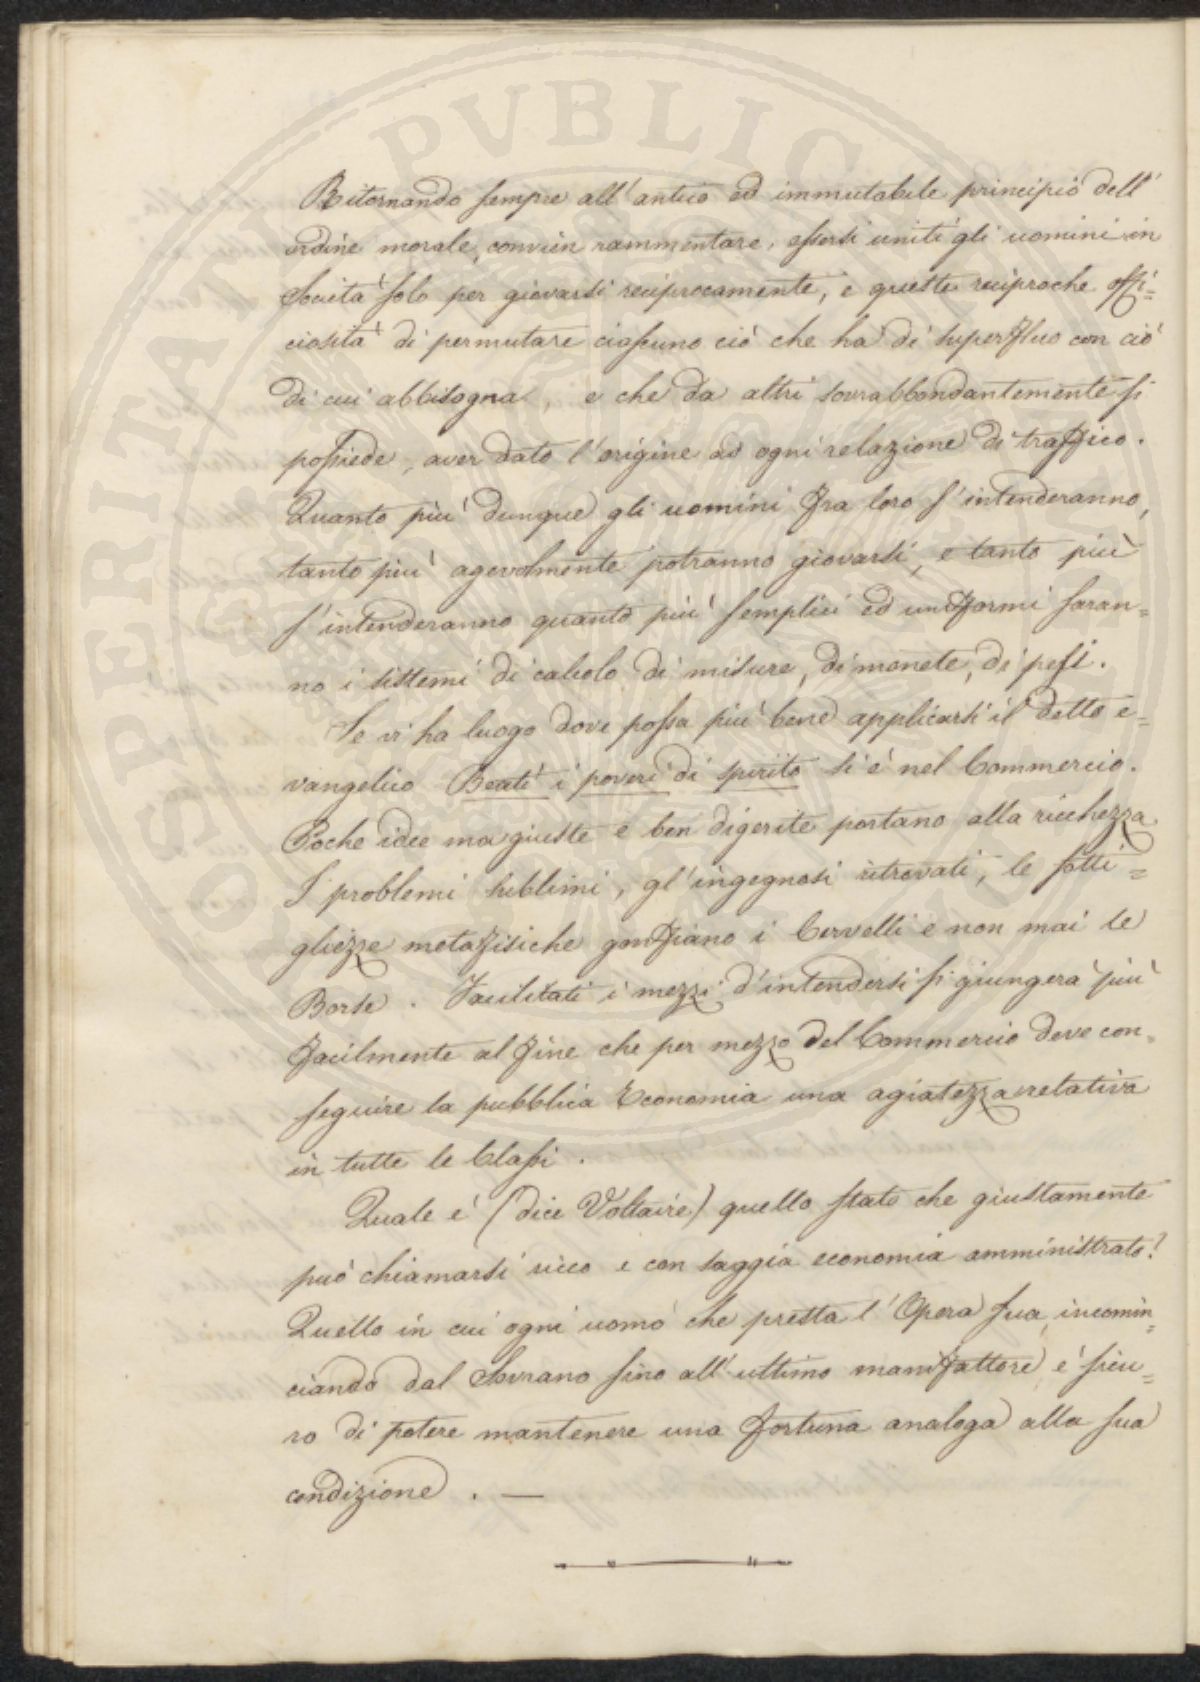 Ritornando sempre all'antico ed immutabile principio dell'
ordine morale, convien rammentare, essersi uniti gli uomini in
Società solo per giovarsi reciprocamente, e queste reciproche offi=
ciosità di permutare ciascuno ciò che ha di superfluo con ciò
di cui abbisogna, e che da altri sovrabbondantemente si
possiede, aver dato l'origine ad ogni relazione di traffico.
Quanto più dunque gli uomini fra loro s'intenderanno,
tanto più agevolmente potranno giovarsi, e tanto più
s'intenderanno quanto più semplici ed uniformi saran=
no i sistemi di calcolo di misure, di monete, di pesi.
Se vi ha luogo dove possa più bene applicarsi il detto e=
vangelico Beati i poveri di spirito si è nel Commercio.
Poche idee ma giuste e ben digerite portano alla ricchezza
I problemi sublimi, gl'ingegnosi ritrovati, le sotti=
gliezze metafisiche gonfiano i Cervelli e non mai le
Borse. Facilitati i mezzi d'intendersi si giungerà più
facilmente al fine che per mezzo del Commercio deve con=
seguire la pubblica Economia una agiatezza relativa
in tutte le Classi.
Quale è (dice Voltaire) quello stato che giustamente
può chiamarsi ricco e con saggia economia amministrato?
Quello in cui ogni uomo che presta l'Opera sua, incomin=
ciando dal Sovrano sino all'ultimo manifattore è sicu=
ro di potere mantenere una fortuna analoga alla sua
condizione. —
PROSPERITATI PVBLICAE